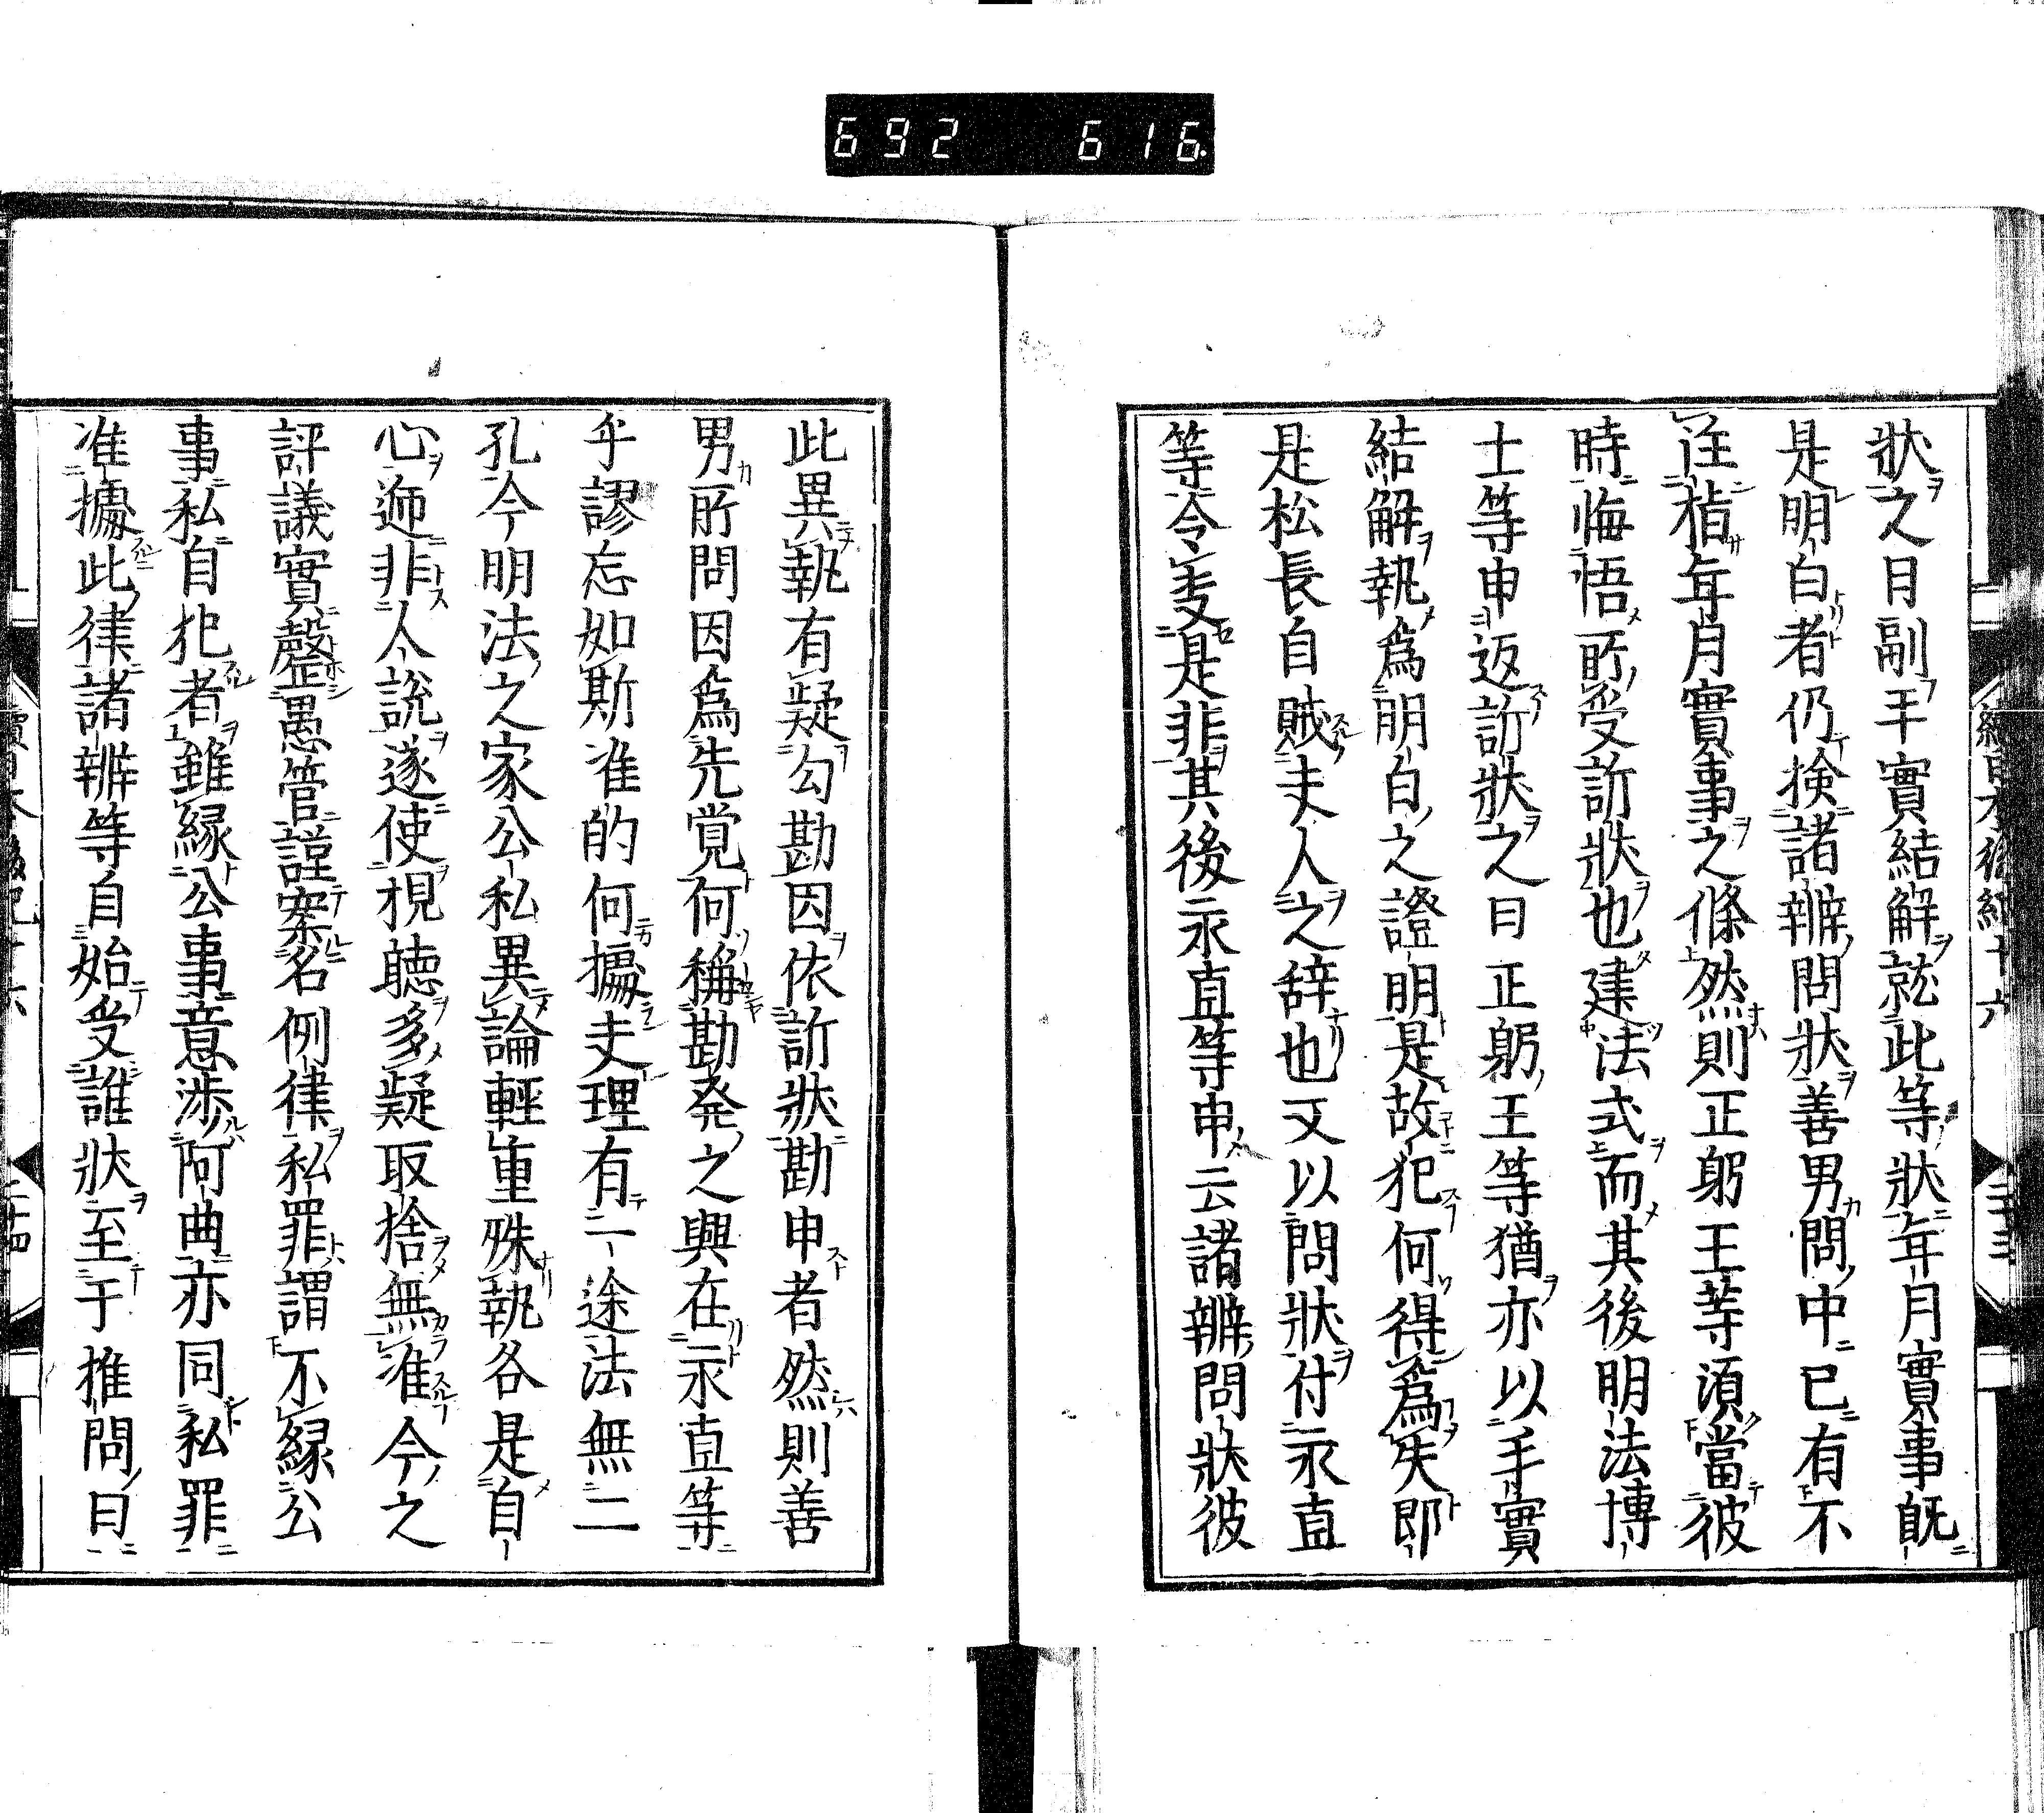 692 616
狀之日副干實結解就此等狀年月實事既
是明白者仍檢諸辨問狀善男問中已有不
注指年月實事之條然則正躬王等須當彼
時悔悟所受訴狀也建法式而其後明法博
士等申返訴狀之日正躬王等猶亦以手實
結解執爲明白之證明是故犯何得爲失即
是松長自賊夫人之辞也又以問狀付永直
等令定是非其後永直等申云諸辨問狀彼
此異執有疑勾勘因依訴狀勘申者然則善
男所問因爲先覚何稱勘発之興在永直等
乎謬忘如斯准的何據夫理有一途法無二
孔今明法之家公私異論輕重殊執各是自
心迊非人說遂使視聴多疑取捨無准今之
評議實罄愚管謹案名例律私罪謂不縁公
事私自犯者雖縁公事意渉阿曲亦同私罪
准據此律諸辨等自始受誰狀至于推問日